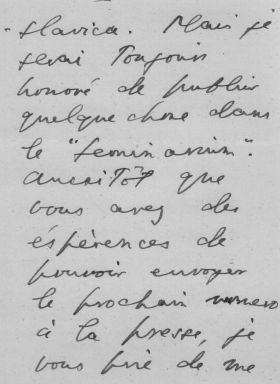 -slavica. Mais je
serai toujours
honoré de publier
quelque chose dans
le "seminarium".
Aussitôt que
vous avez des
éspérences de
pouvoir envoyer
le prochain numero
à la presse, je
vous prie de me